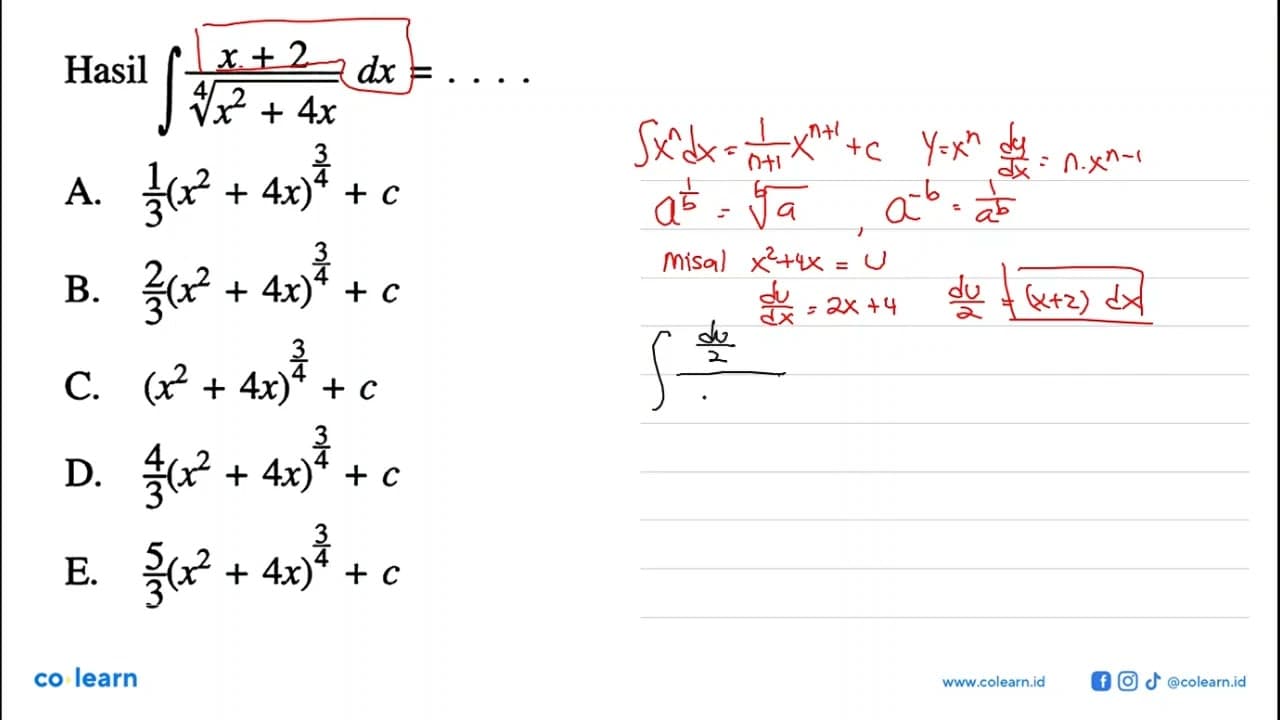 Hasil ∫ (x + 2)/⁴√(x² + 4x) dx = . . . .
A. 1/3(x² + 4x)^(3/4) + c
B. 2/3(x² + 4x)^(3/4) + c
C. (x² + 4x)^(3/4) + c
D. 4/3(x² + 4x)^(3/4) + c
E. 5/3(x² + 4x)^(3/4) + c
∫xⁿdx = 1/(n+1) x^(n+1) + c  y=xⁿ  dy/dx = n.x^(n-1)
a^(1/b) = ᵇ√a , a^(-b) = 1/a^b
Misal x²+4x = U
du/dx = 2x+4  du/2 = (x+2) dx
∫ (du/2)/.
co learn
www.colearn.id
@colearn.id